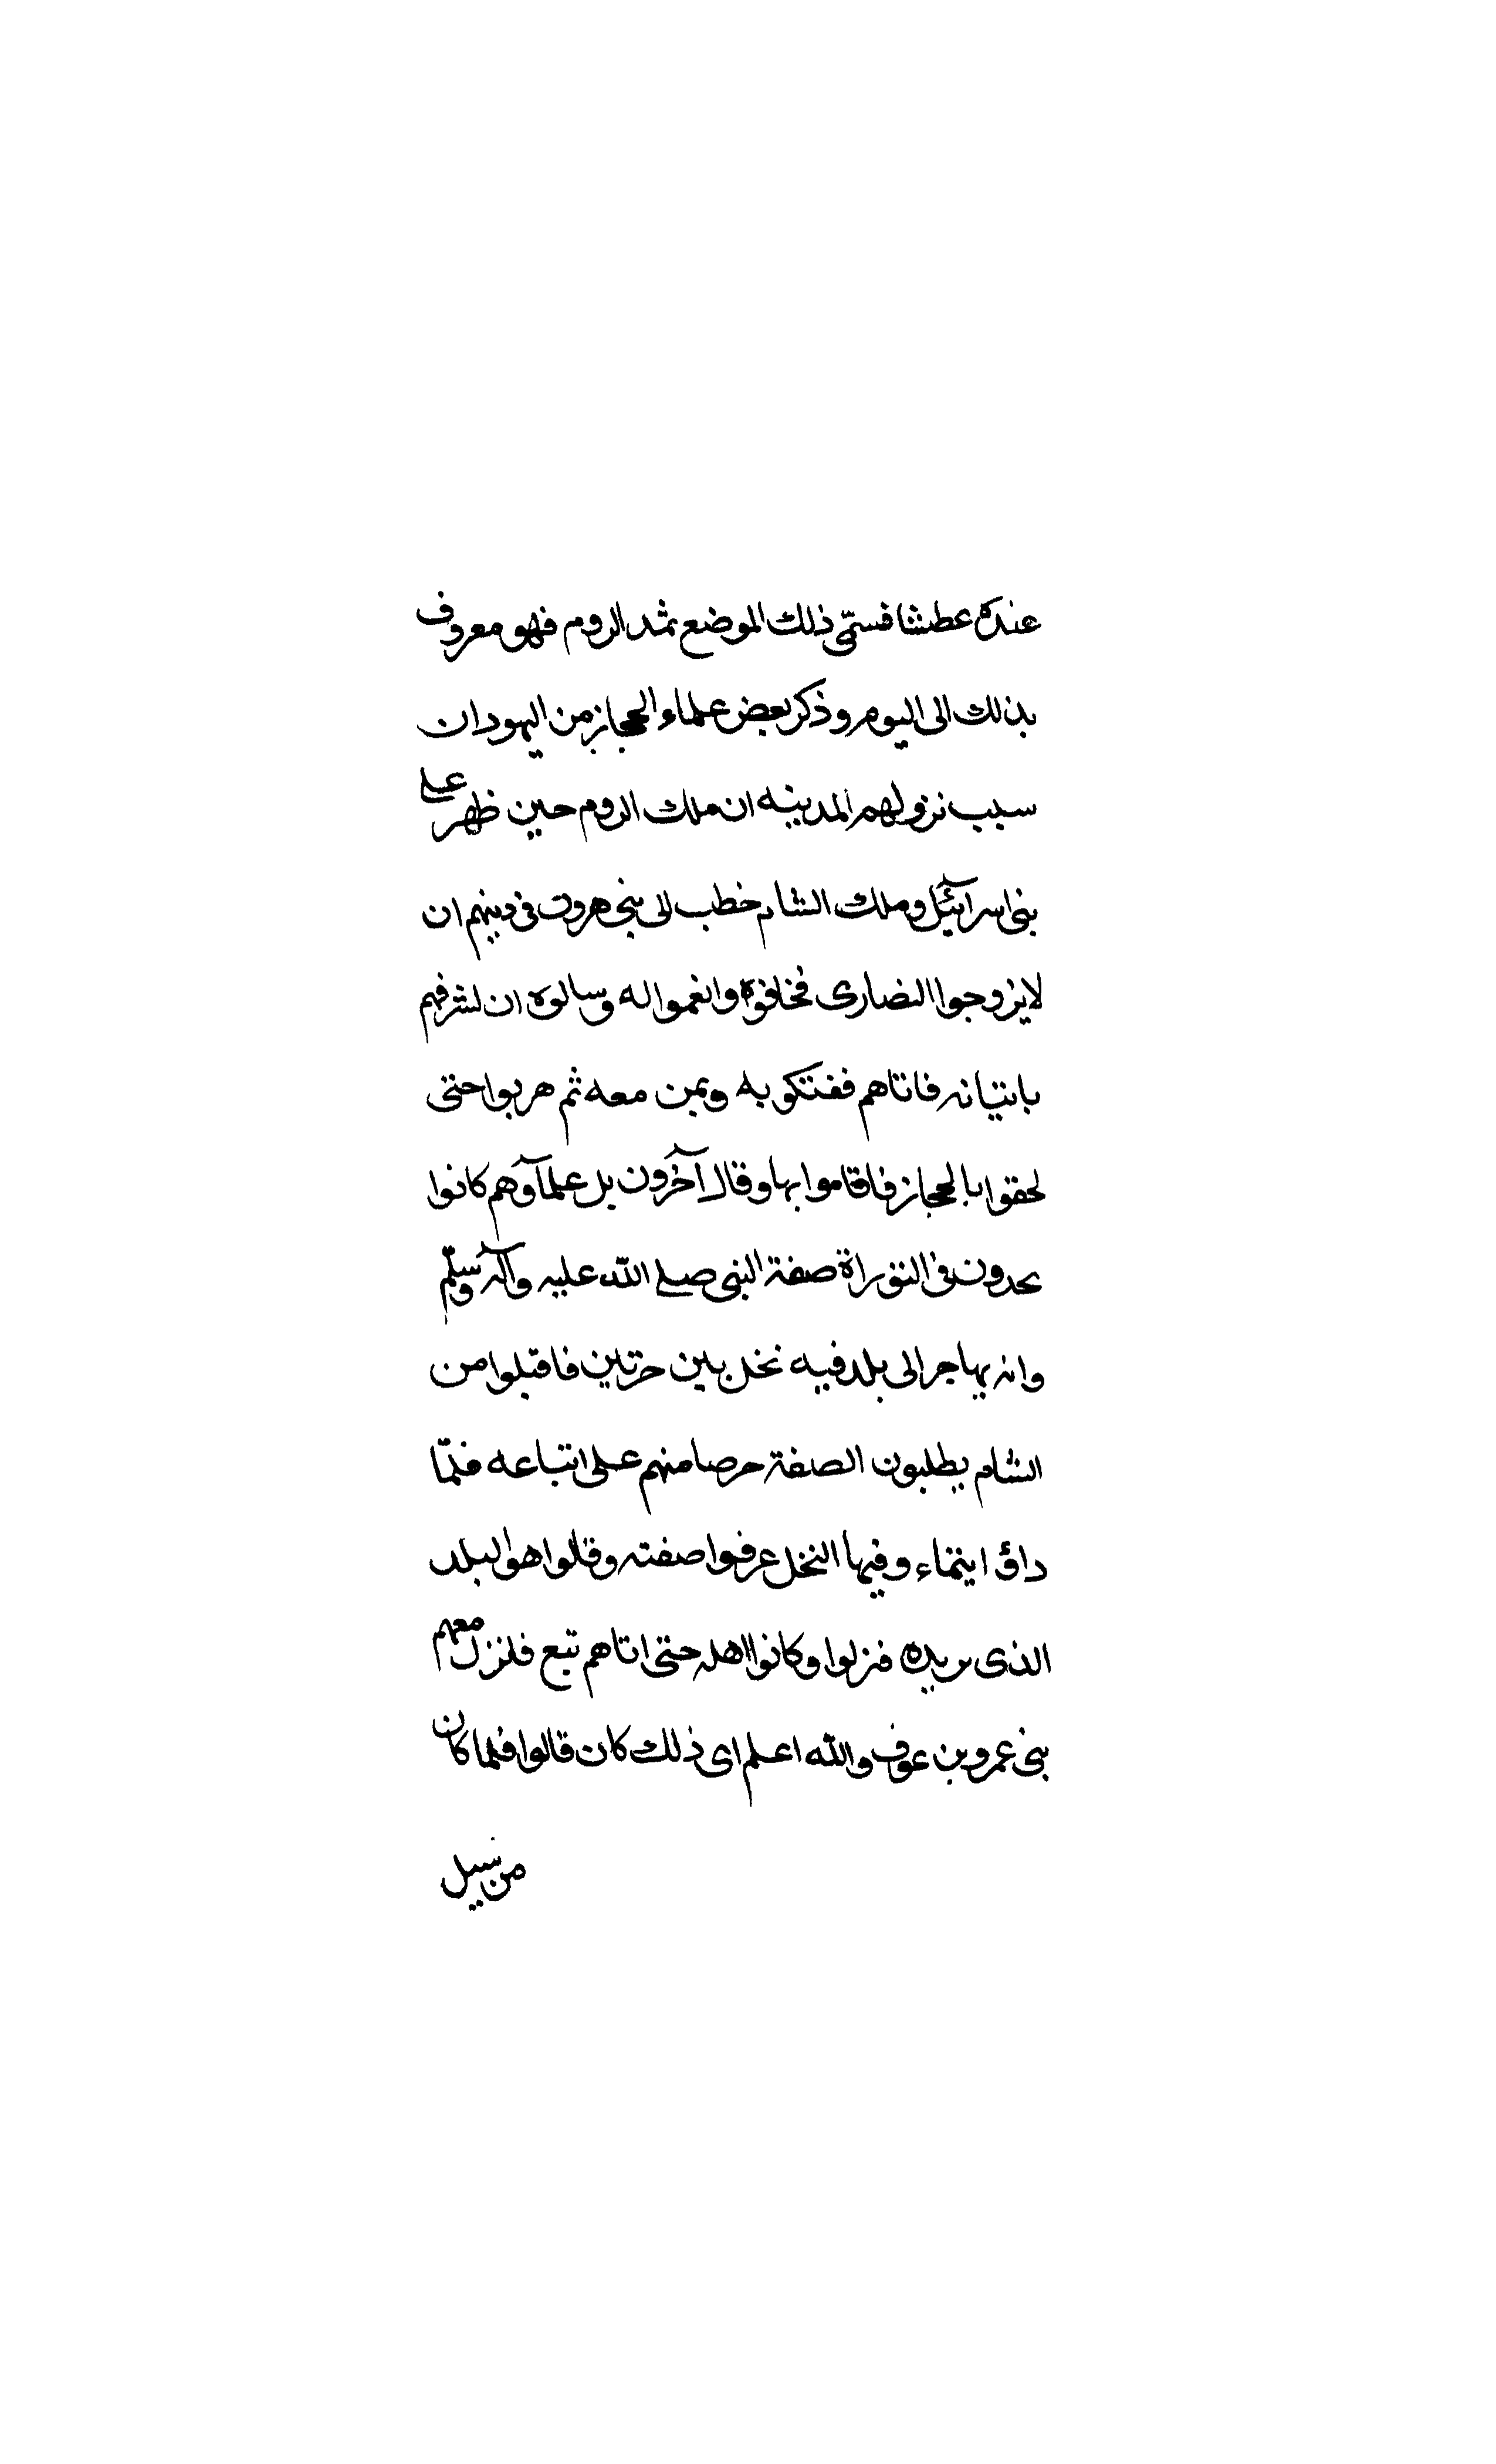 عنده عطشا فسمّى ذلك الموضع ثمد الروم فهو معروف
بذلك الى اليوم وذكر بعض علماء الحجاز من اليهود ان
سبب نزولهم المدينه ان ملك الروم حين ظهر على
بنى اسرآئيل وملك الشام خطب الى بنى هرون فى دينهم ان
لا يزوجوا النصارى فخافوه وانعموا له وسالوه ان يشرفهم
باتيانه فاتاهم ففتكو به وبمن معه ثم هربوا حتى
لحقوا بالحجاز فاقاموا بها وقال آخرون بل علمآؤهم كانوا
يجدون فى التوراة صفة النبى صلى الله عليه وآله وسلّم
وانه يهاجر الى بلد فيه نخل بين حرتين فاقبلوا من
الشام يطلبون الصفة حرصا منهم على اتباعه فلمّا
داؤ ايتماء وفيها النخل عرفوا صفته وقالوا هو البلد
الذى نريده فنزلوا وكانوا اهله حتى اتاهم تبع فانزل معهم
بنى عمرو بن عوف والله اعلم اى ذلك كان قالوا فلما كان
من سيل